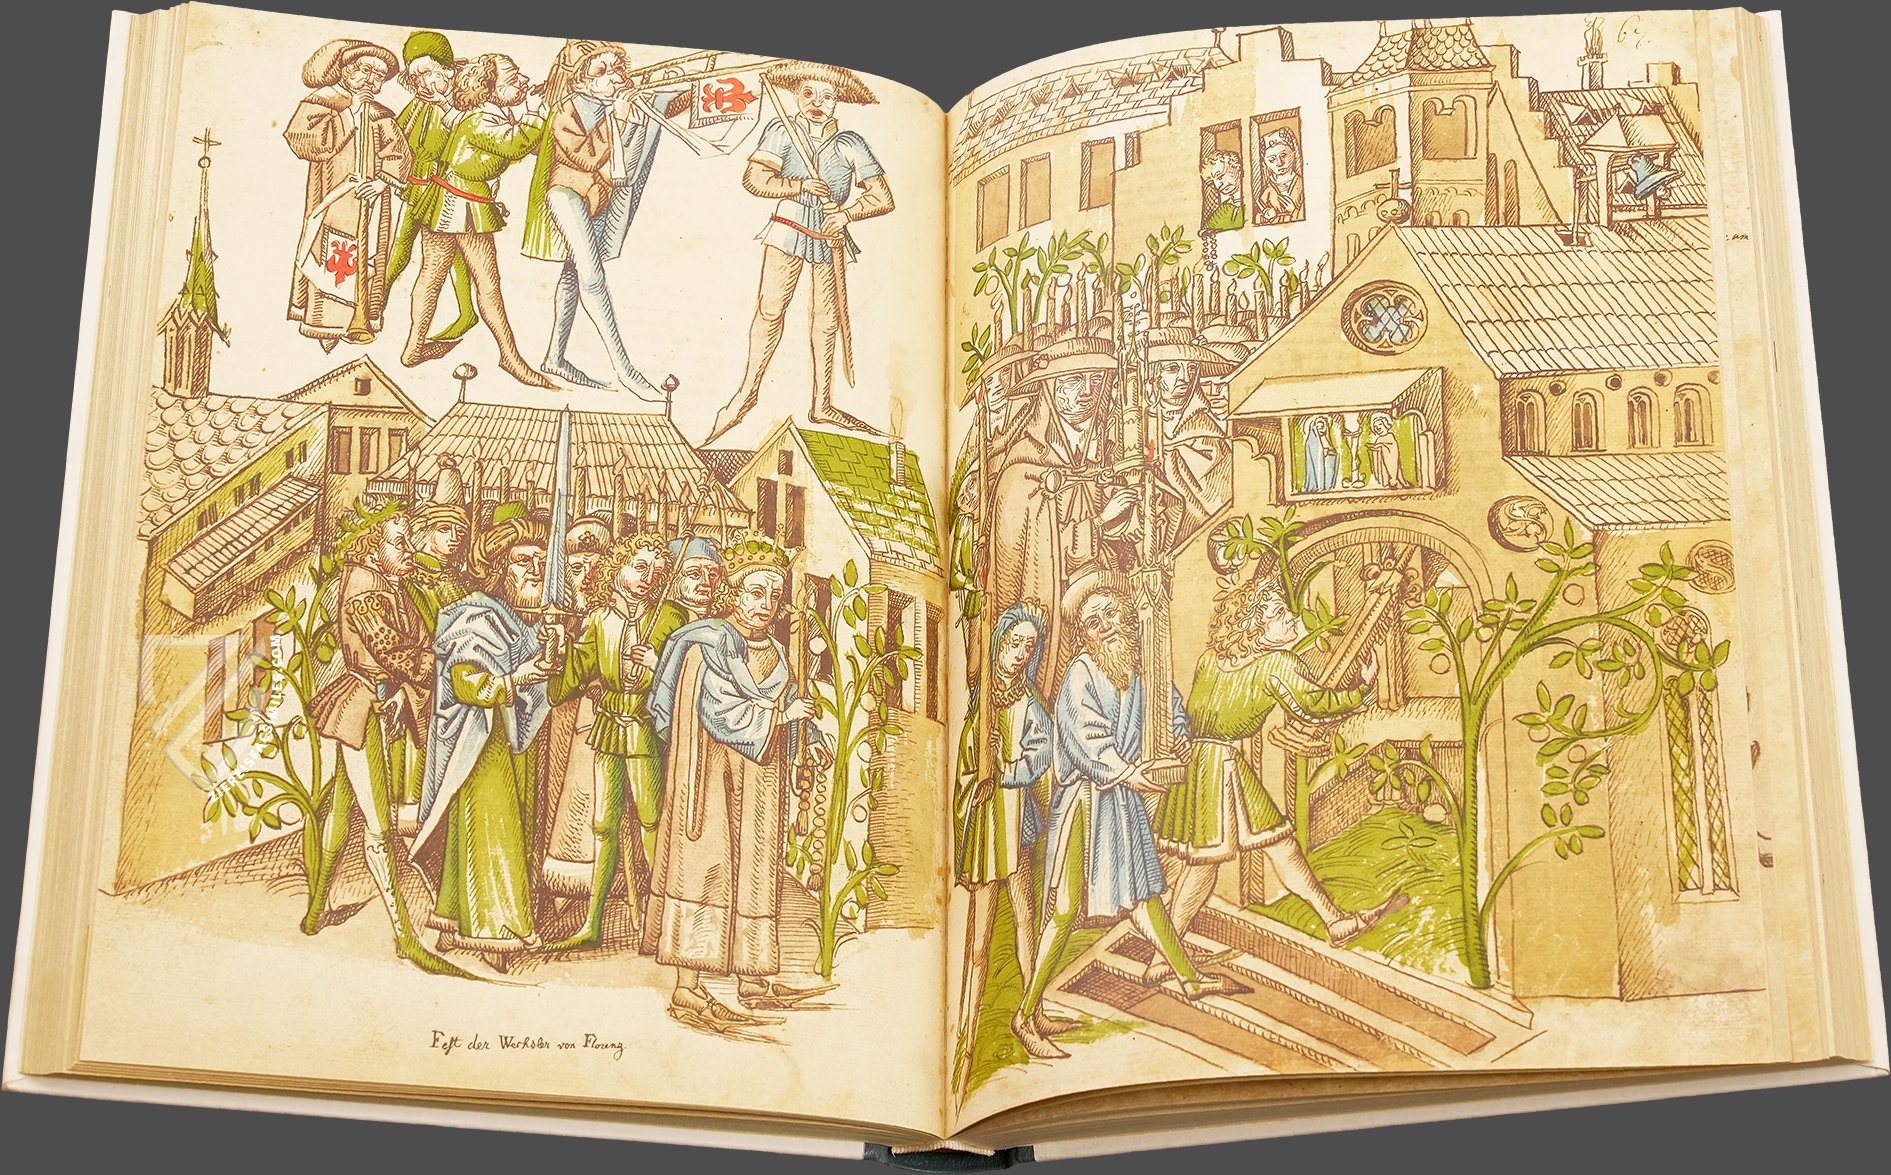 67.
Fest der Wechsler von Florenz.
ZIEREIS FACSIMILES.COM